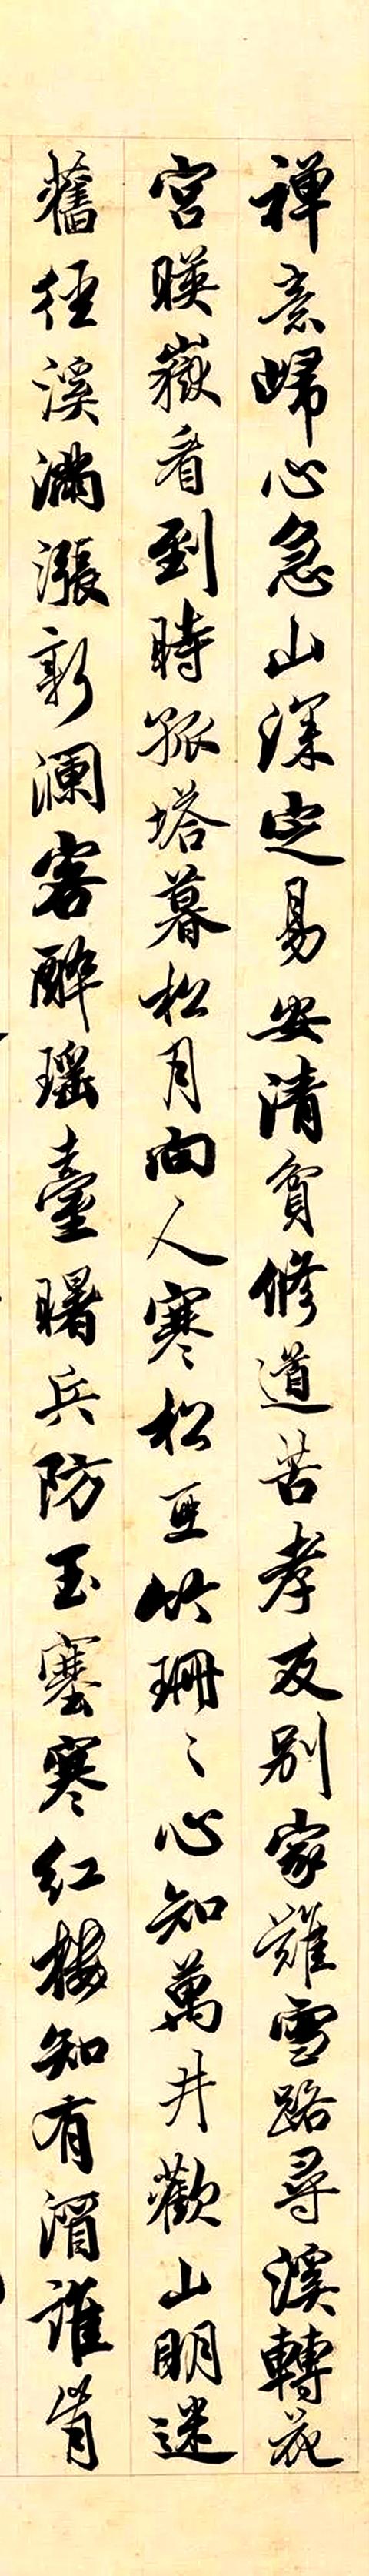 禅意歸心急山深定易安清貧修道苦孝友別家難雪路尋溪轉花
宮暎嶽看到時孤塔暮松月向人寒松亚竹珊〻心知萬井歡山明迷
舊徑溪滿漲新瀾客醉瑶臺曙兵防玉塞寒紅樓知有酒誰肯